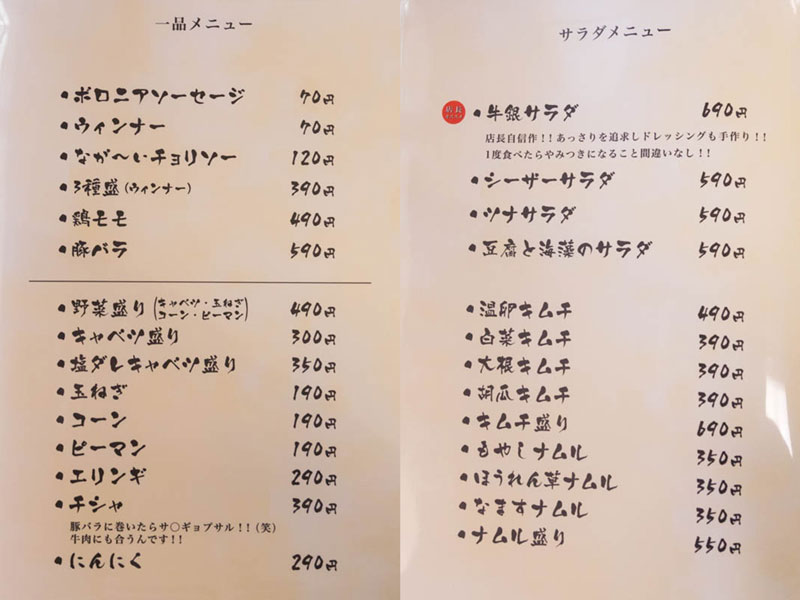 一品メニュー
・ボロニアソーセージ 70円
・ウィンナー 70円
・なが〜いチョリソー 120円
・3種盛(ウィンナー) 390円
・鶏モモ 490円
・豚バラ 590円
・野菜盛り(キャベツ・玉ねぎ コーン・ピーマン) 490円
・キャベツ盛り 300円
・塩ダレキャベツ盛り 350円
・玉ねぎ 190円
・コーン 190円
・ピーマン 190円
・エリンギ 290円
・チシャ 390円
豚バラに巻いたらサ○ギョプサル!!(笑)
牛肉にも合うんです!!
・にんにく 290円
サラダメニュー
店長
・牛銀サラダ 690円
店長自信作!!あっさりを追求しドレッシングも手作り!!
1度食べたらやみつきになること間違いなし!!
・シーザーサラダ 590円
・ツナサラダ 590円
・豆腐と海藻のサラダ 590円
・温卵キムチ 490円
・白菜キムチ 390円
・大根キムチ 390円
・胡瓜キムチ 390円
・キムチ盛り 690円
・もやしナムル 350円
・ほうれん草ナムル 350円
・なますナムル 350円
・ナムル盛り 550円